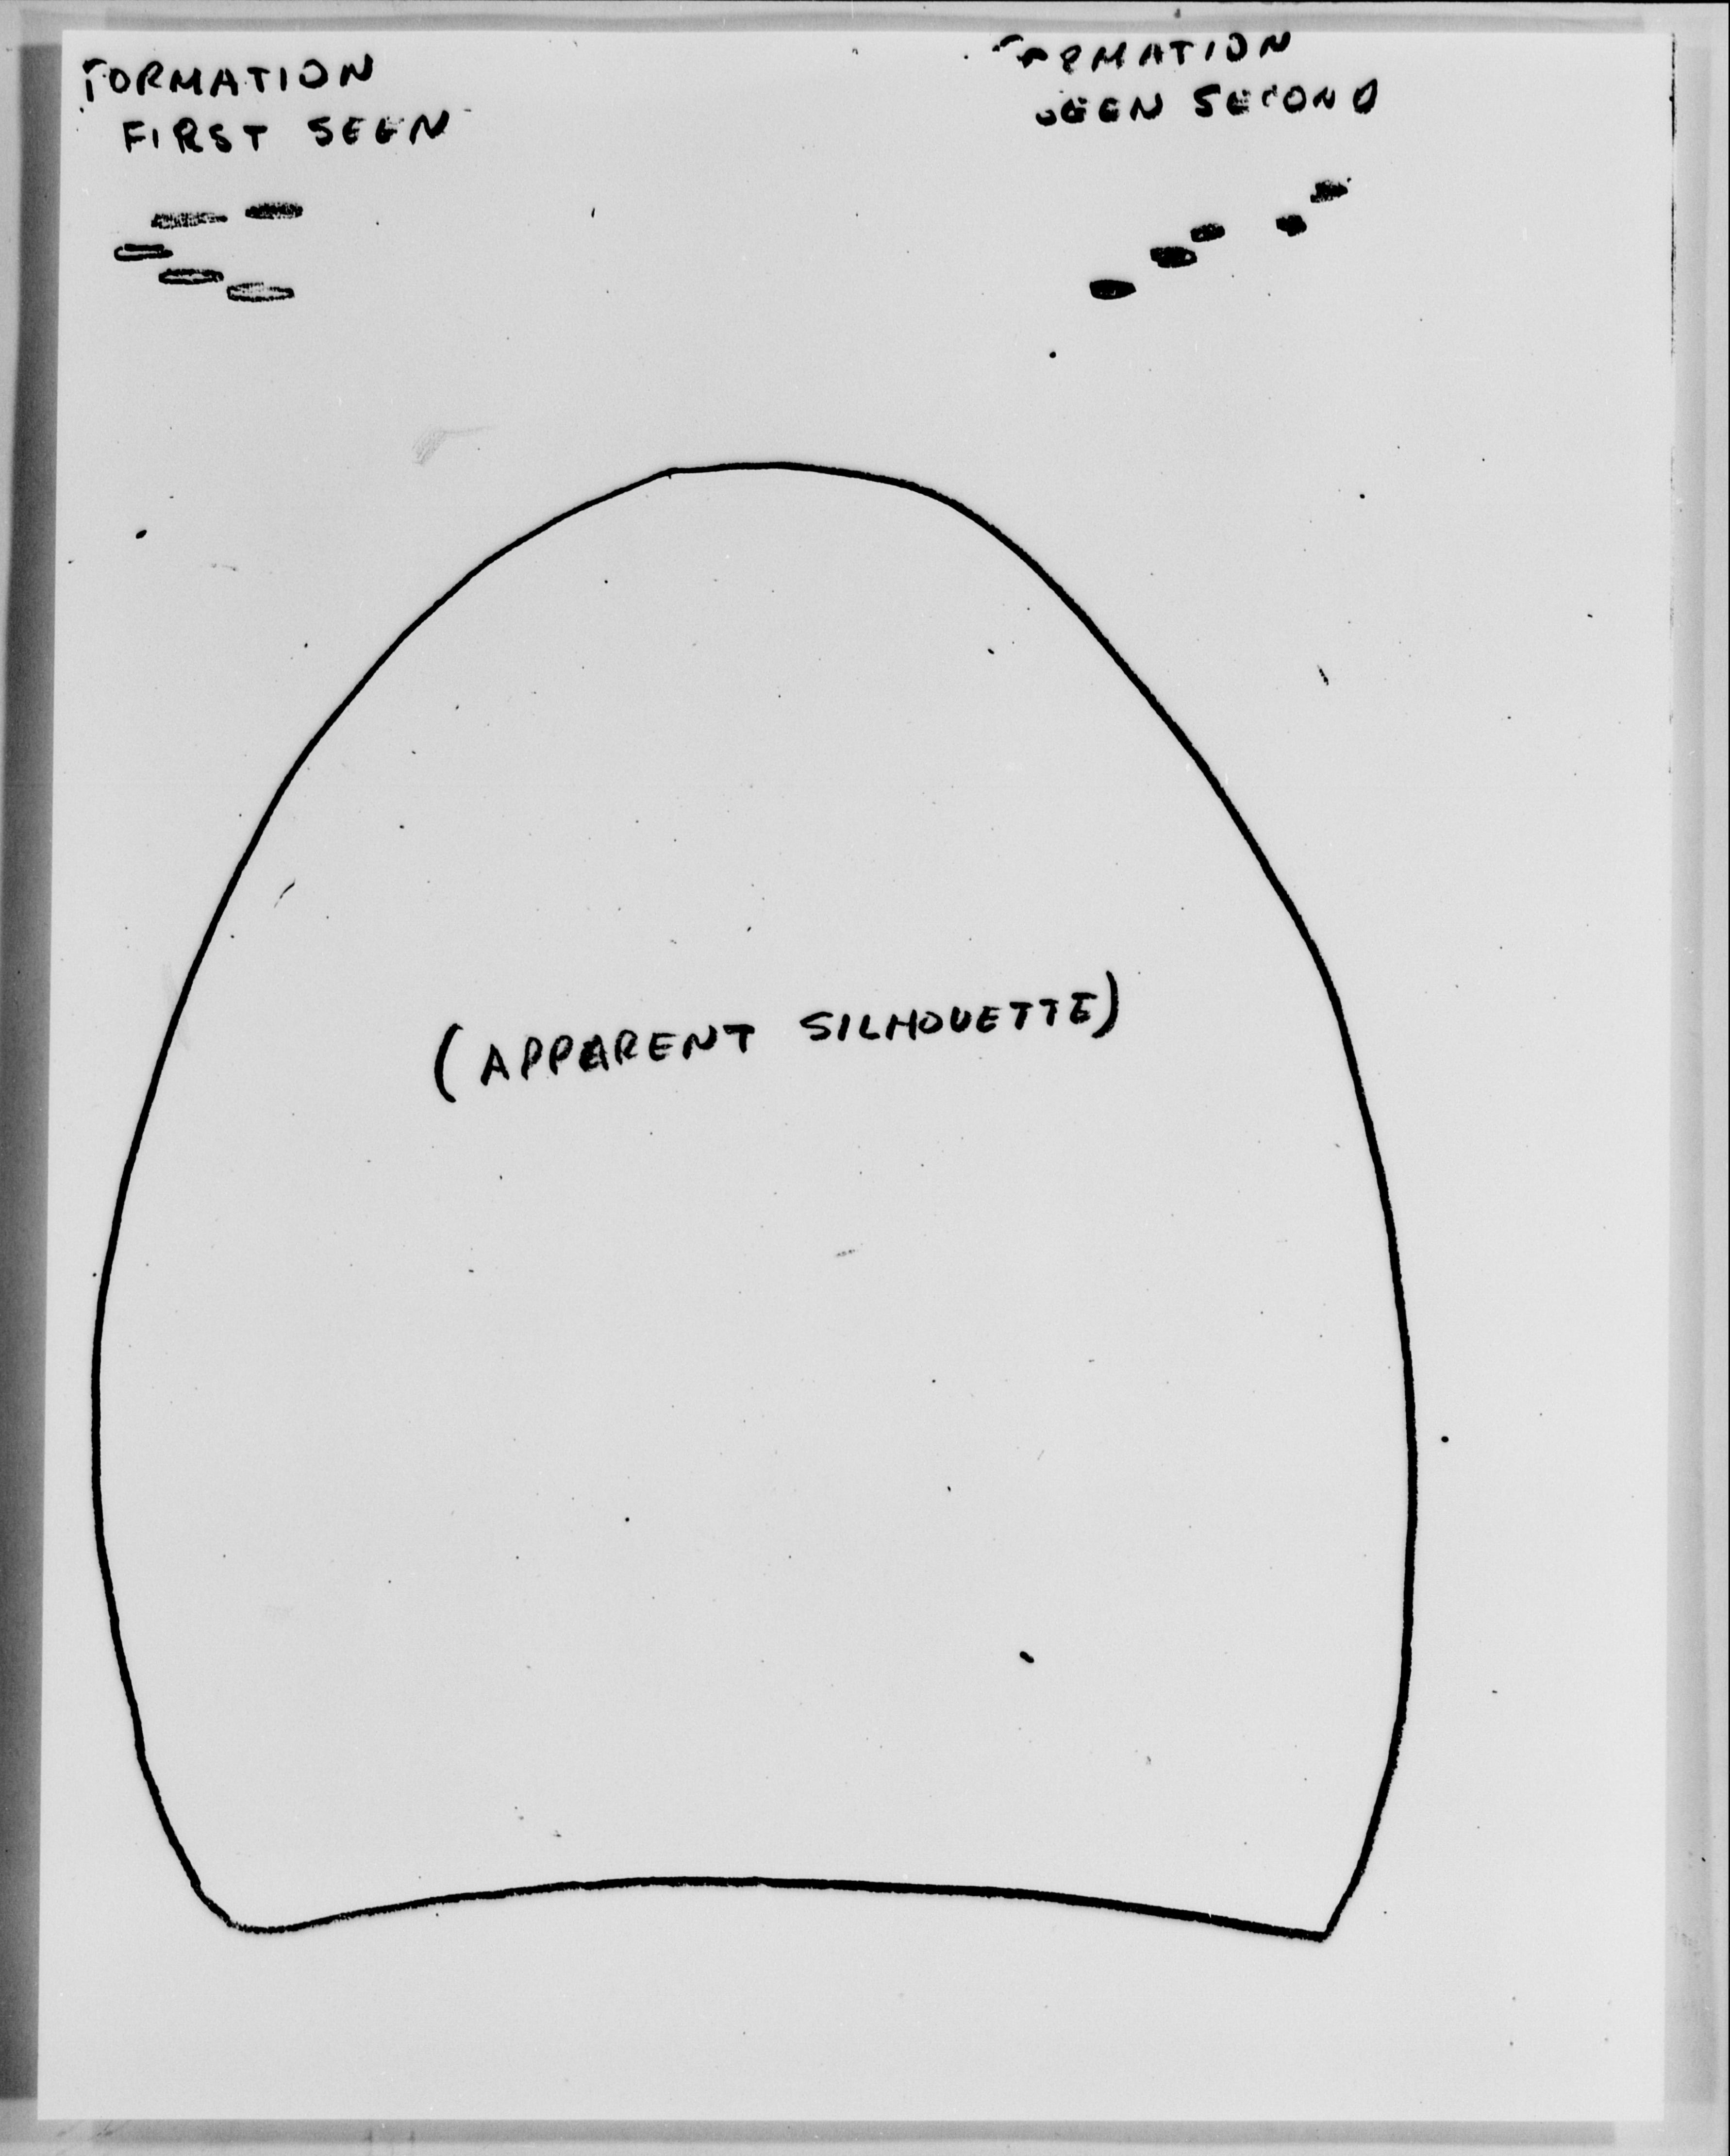 FORMATION
FIRST SEEN
FORMATION
SEEN SECOND
(APPARENT SILHOUETTE)